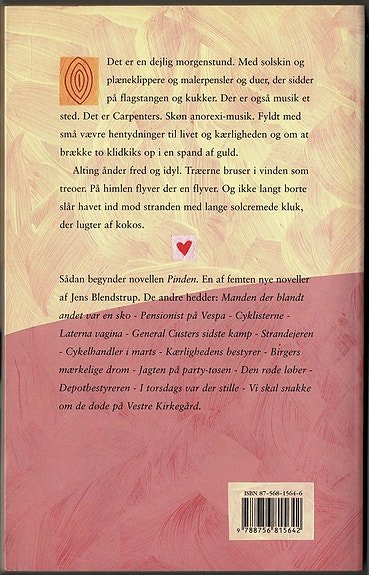 Det er en dejlig morgenstund. Med solskin og
plæneklippere og malerpensler og duer, der sidder
på flagstangen og kukker. Der er også musik et
sted. Det er Carpenters. Skøn anorexi-musik. Fyldt med
små vævre hentydninger til livet og kærligheden og om at
brække to klidkiks op i en spand af guld.
Alting ånder fred og idyl. Træerne bruser i vinden som
treoer. På himlen flyver der en flyver. Og ikke langt borte
slår havet ind mod stranden med lange solcremede kluk,
der lugter af kokos.
Sådan begynder novellen Pinden. En af femten nye noveller
af Jens Blendstrup. De andre hedder: Manden der blandt
andet var en sko - Pensionist på Vespa - Cyklisterne -
Laterna vagina - General Custers sidste kamp - Strandejeren
- Cykelhandler i marts - Kærlighedens bestyrer - Birgers
mærkelige drøm - Jagten på party-tøsen - Den røde løber -
Depotbestyreren - I torsdags var der stille - Vi skal snakke
om de døde på Vestre Kirkegård.
ISBN 87-568-1564-6
9 788756 815642